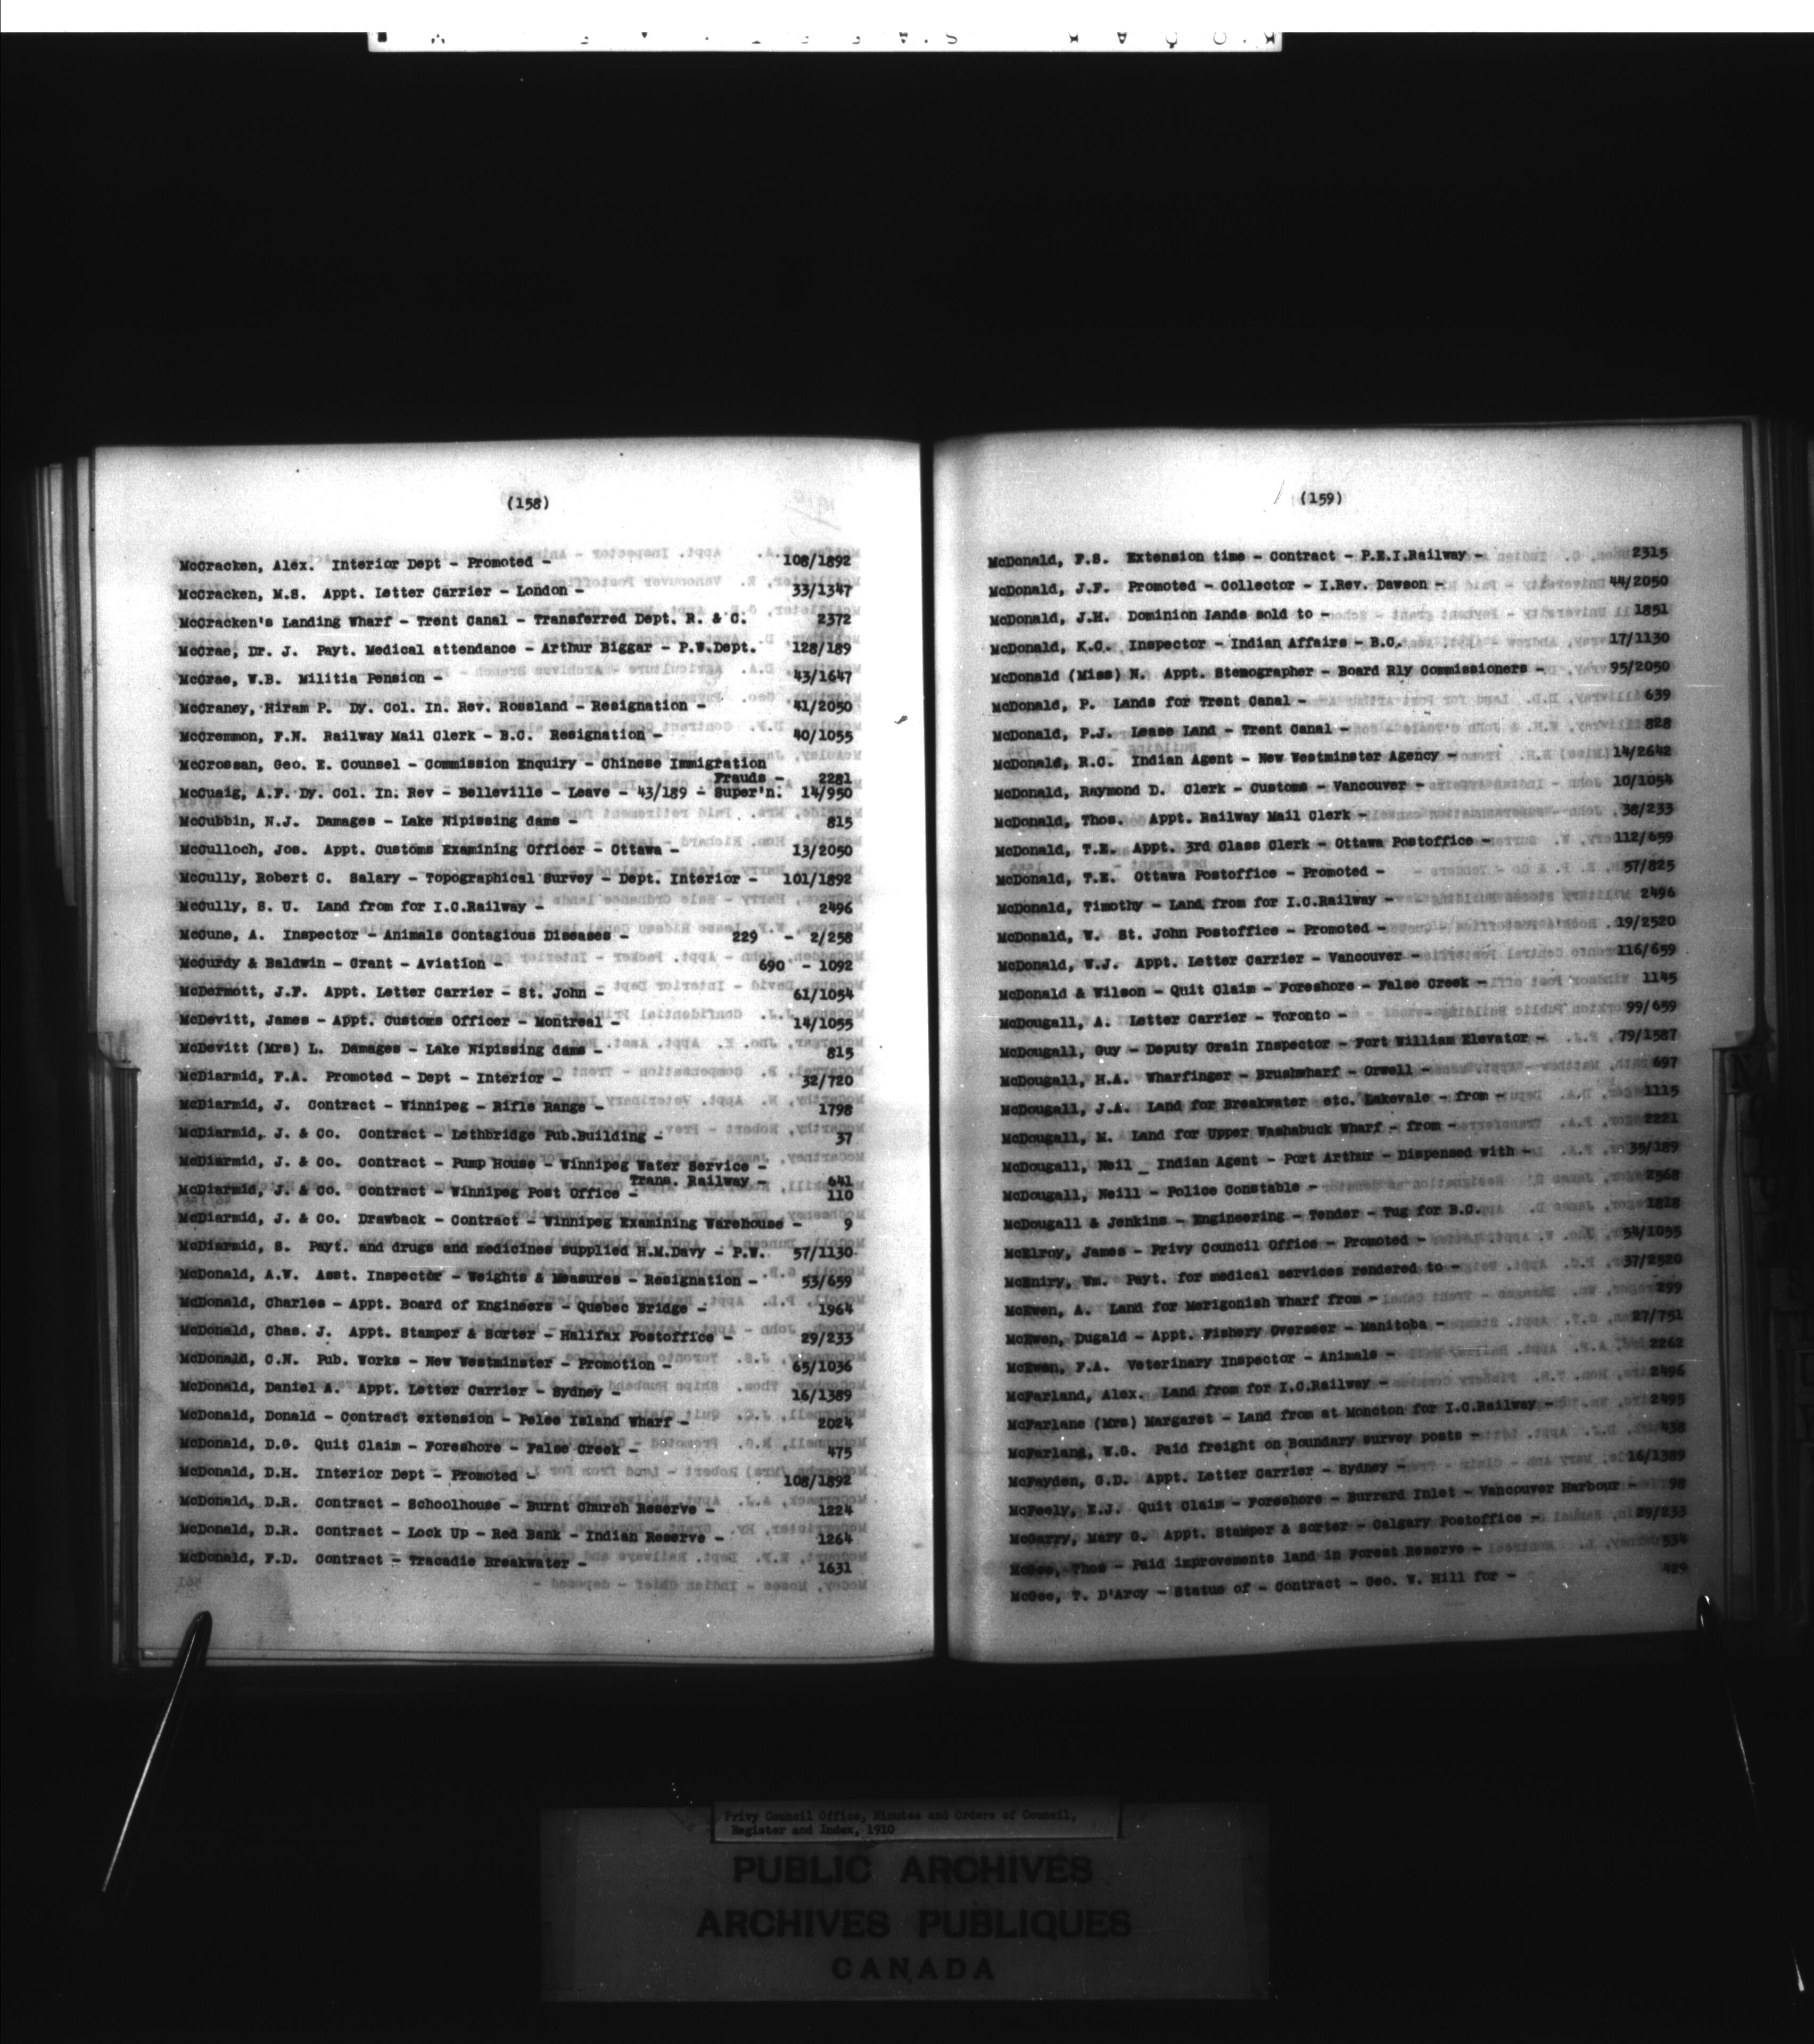 (158)
McCracken, Alex. Interior Dept - Promoted - 108/1892
McCracken, M.S. Appt. Letter Carrier - London - 33/1347
McCracken's Landing Wharf - Trent Canal - Transferred Dept. R. & C. 2372
McCrae, Dr. J. Payt. Medical attendance - Arthur Biggar - P.W.Dept. 128/189
McCrae, W.B. Militia Pension - 43/1647
McCraney, Hiram P. Dy. Col. In. Rev. Rossland - Resignation - 41/2050
McCremmon, F.N. Railway Mail Clerk - B.C. Resignation - 40/1055
McCrossan, Geo. E. Counsel - Commission Enquiry - Chinese Immigration
Frauds - 2281
McCuaig, A.F. Dy. Col. In. Rev - Belleville - Leave - 43/189 - Super'n. 14/950
McCubbin, N.J. Damages - Lake Nipissing dams - 815
McCulloch, Jos. Appt. Customs Examining Officer - Ottawa - 13/2050
McCully, Robert C. Salary - Topographical Survey - Dept. Interior - 101/1892
McCully, S. U. Land from for I.C.Railway - 2496
McCune, A. Inspector - Animals Contagious Diseases - 229 - 2/258
McCurdy & Baldwin - Grant - Aviation - 690 - 1092
McDermott, J.F. Appt. Letter Carrier - St. John - 61/1054
McDevitt, James - Appt. Customs Officer - Montreal - 14/1055
McDevitt (Mrs) L. Damages - Lake Nipissing dams - 815
McDiarmid, F.A. Promoted - Dept - Interior - 32/720
McDiarmid, J. Contract - Winnipeg - Rifle Range - 1798
McDiarmid, J. & Co. Contract - Lethbridge Pub.Building - 37
McDiarmid, J. & Co. Contract - Pump House - Winnipeg Water Service -
Trans. Railway - 641
McDiarmid, J. & Co. Contract - Winnipeg Post Office - 110
McDiarmid, J. & Co. Drawback - Contract - Winnipeg Examining Warehouse - 9
McDiarmid, S. Payt. and drugs and medicines supplied H.M.Davy - P.W. 57/1130
McDonald, A.W. Asst. Inspector - Weights & Measures - Resignation - 53/659
McDonald, Charles - Appt. Board of Engineers - Quebec Bridge - 1964
McDonald, Chas. J. Appt. Stamper & Sorter - Halifax Postoffice - 29/233
McDonald, C.N. Pub. Works - New Westminster - Promotion - 65/1036
McDonald, Daniel A. Appt. Letter Carrier - Sydney - 16/1389
McDonald, Donald - Contract extension - Pelee Island Wharf - 2024
McDonald, D.G. Quit Claim - Foreshore - False Creek - 475
McDonald, D.H. Interior Dept - Promoted - 108/1892
McDonald, D.R. Contract - Schoolhouse - Burnt Church Reserve - 1224
McDonald, D.R. Contract - Lock Up - Red Bank - Indian Reserve - 1264
McDonald, F.D. Contract - Tracadie Breakwater - 1631
(159)
McDonald, F.S. Extension time - Contract - P.E.I.Railway - 2315
McDonald, J.F. Promoted - Collector - I.Rev. Dawson - 44/2050
McDonald, J.H. Dominion Lands sold to - 1851
McDonald, K.C. Inspector - Indian Affairs - B.C. 17/1130
McDonald (Miss) N. Appt. Stenographer - Board Rly Commissioners - 95/2050
McDonald, P. Lands for Trent Canal - 639
McDonald, P.J. Lease Land - Trent Canal - 828
McDonald, R.C. Indian Agent - New Westminster Agency - 14/2642
McDonald, Raymond D. Clerk - Customs - Vancouver - 10/1054
McDonald, Thos. Appt. Railway Mail Clerk - 38/233
McDonald, T.E. Appt. 3rd Class Clerk - Ottawa Postoffice - 112/659
McDonald, T.E. Ottawa Postoffice - Promoted - 57/825
McDonald, Timothy - Land from for I.C.Railway - 2496
McDonald, W. St. John Postoffice - Promoted - 19/2520
McDonald, W.J. Appt. Letter Carrier - Vancouver - 116/659
McDonald & Wilson - Quit Claim - Foreshore - False Creek - 1145
McDougall, A. Letter Carrier - Toronto - 99/659
McDougall, Guy - Deputy Grain Inspector - Fort William Elevator - 79/1587
McDougall, H.A. Wharfinger - Brushwharf - Orwell - 697
McDougall, J.A. Land for Breakwater etc. Lakevale - from - 1115
McDougall, M. Land for Upper Washabuck Wharf - from - 2221
McDougall, Neil _ Indian Agent - Port Arthur - Dispensed with - 35/189
McDougall, Neill - Police Constable - 2568
McDougall & Jenkins - Engineering - Tender - Tug for B.C. 1818
McElroy, James - Privy Council Office - Promoted - 54/1055
McEniry, Wm. Payt. for medical services rendered to - 37/2520
McEwen, A. Land for Merigonish Wharf from - 299
McEwen, Dugald - Appt. Fishery Overseer - Manitoba - 27/751
McEwen, F.A. Veterinary Inspector - Animals - 2262
McFarland, Alex. Land from for I.C.Railway - 2496
McFarlane (Mrs) Margaret - Land from at Moncton for I.C.Railway - 2495
McFarland, W.G. Paid freight on Boundary survey posts - 438
McFayden, G.D. Appt. Letter Carrier - Sydney - 16/1389
McFeely, E.J. Quit Claim - Foreshore - Burrard Inlet - Vancouver Harbour - 98
McGarry, Mary G. Appt. Stamper & Sorter - Calgary Postoffice - 29/233
McGee, Thos - Paid improvements land in Forest Reserve - 534
McGee, T. D'Arcy - Status of - Contract - Geo. W. Hill for - 429
Privy Council Office, Minutes and Orders of Council,
Register and Index, 1910
PUBLIC ARCHIVES
ARCHIVES PUBLIQUES
CANADA